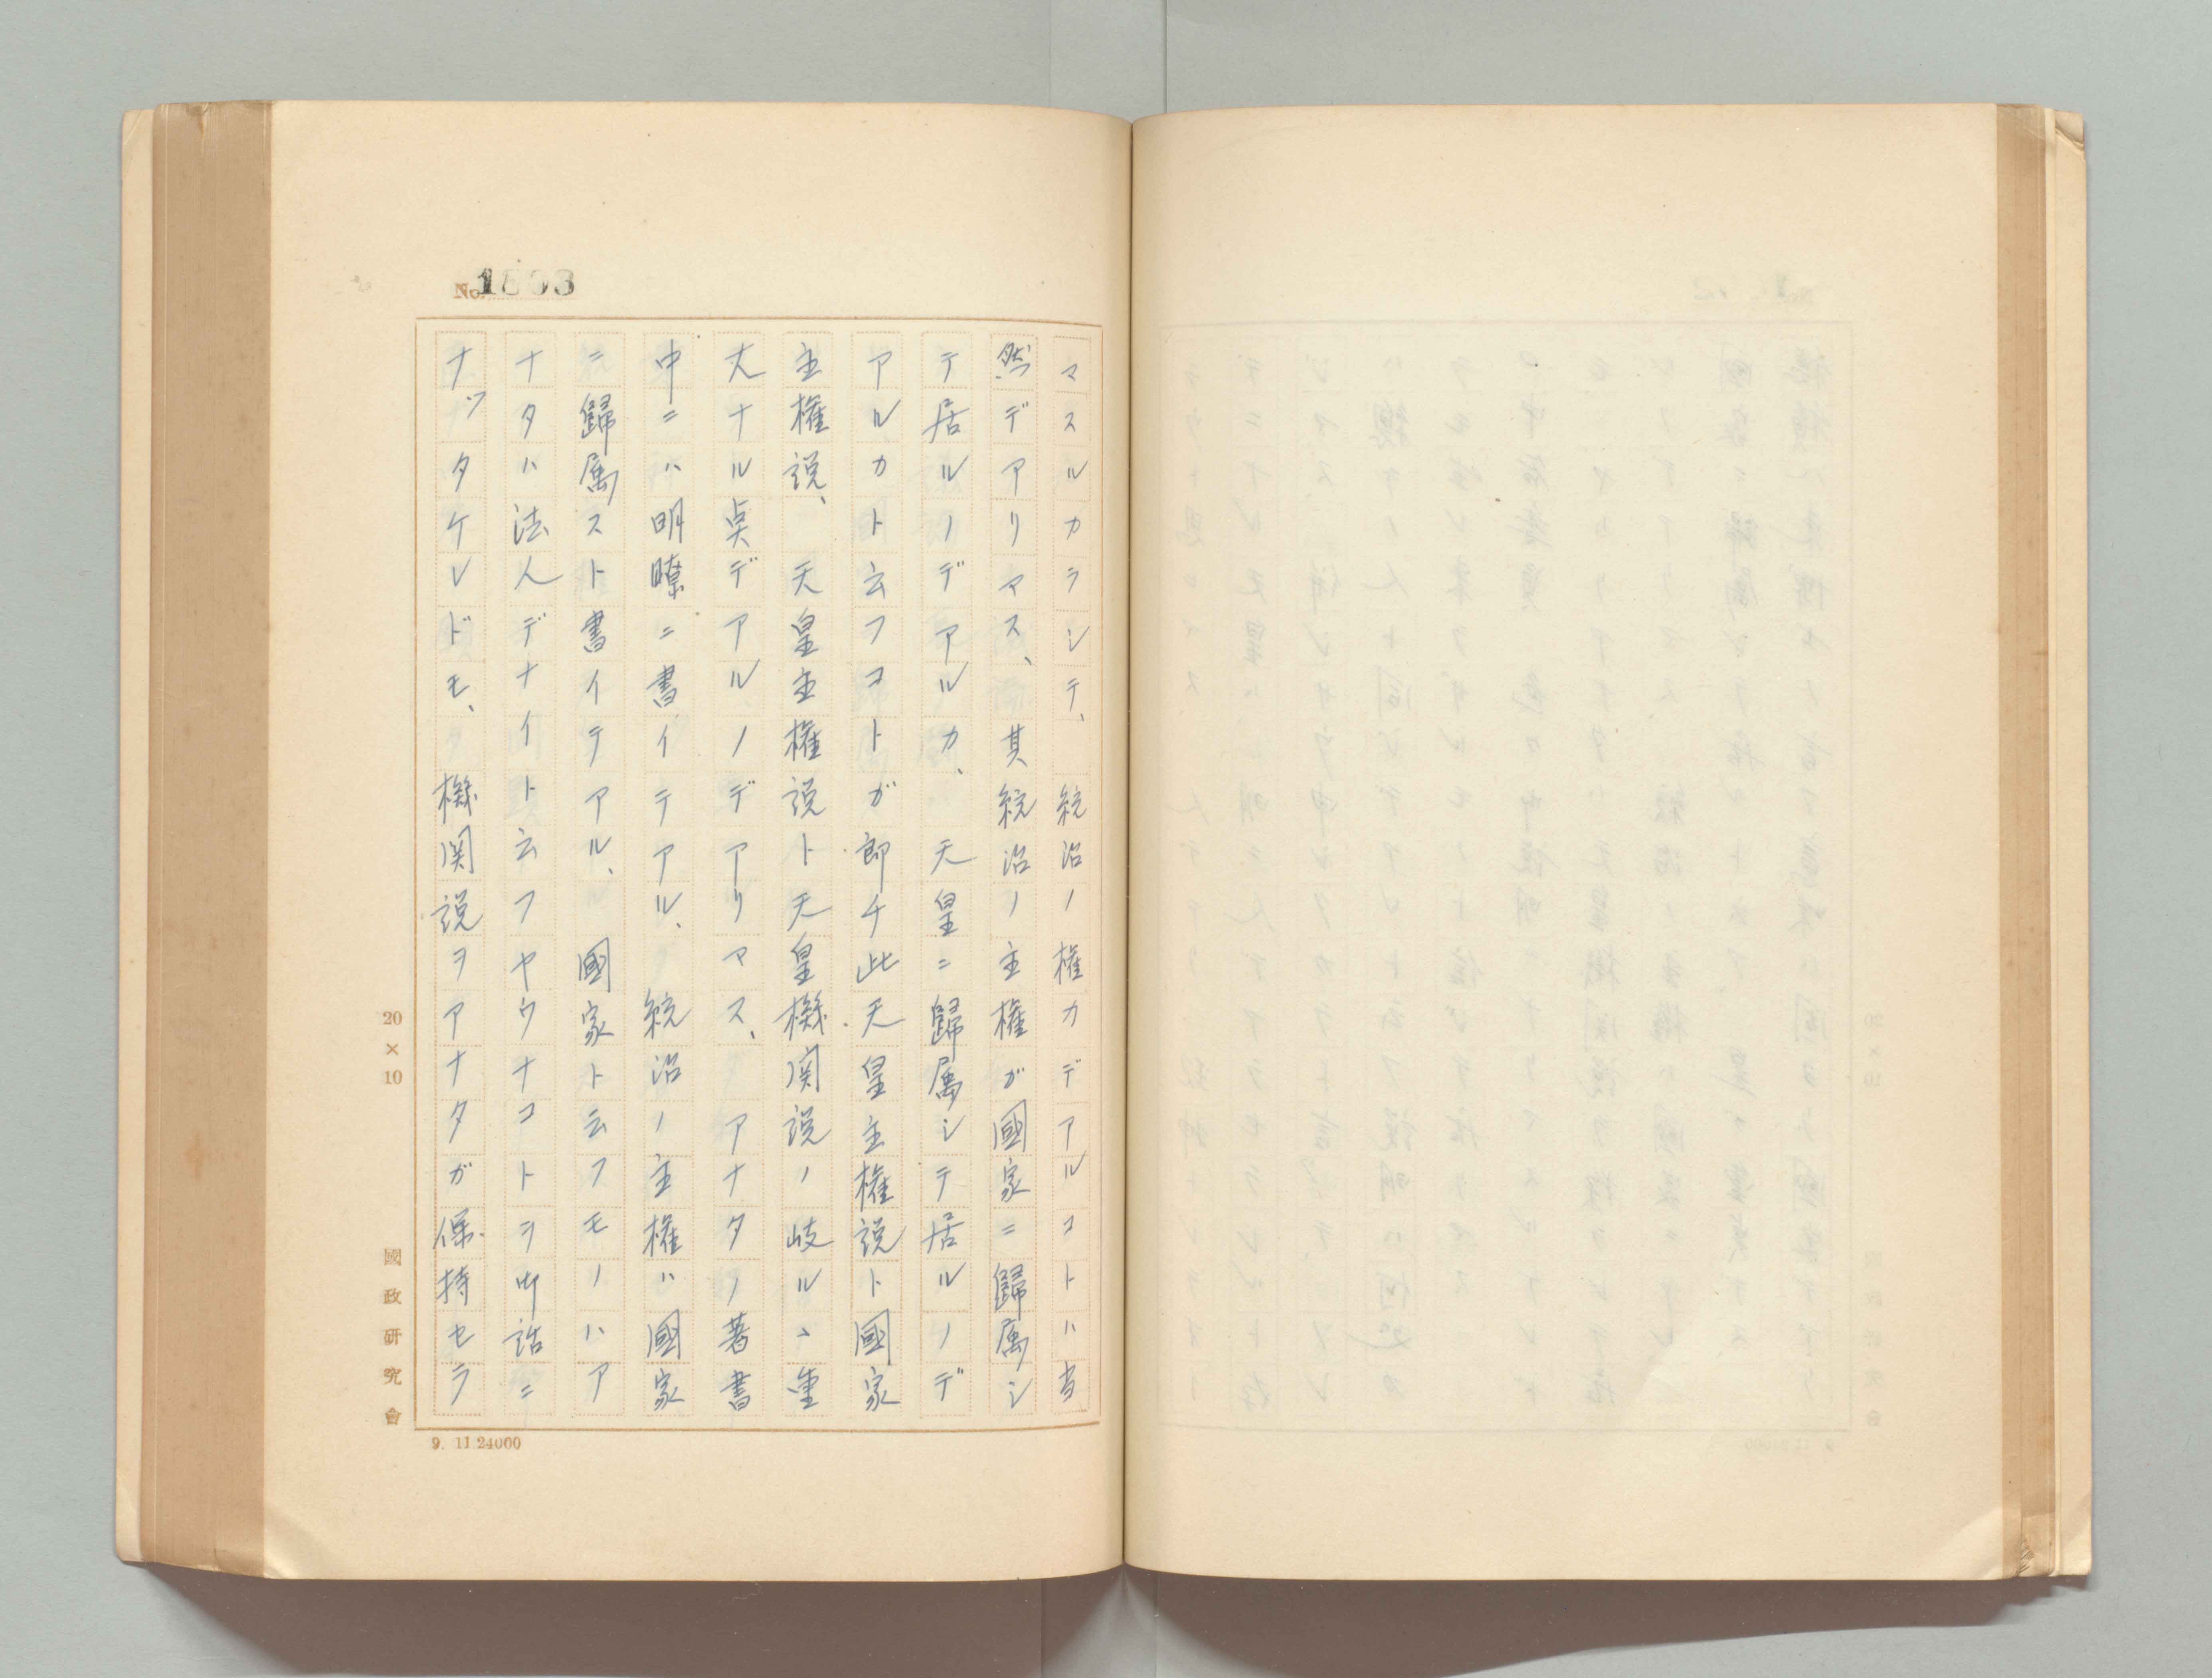 No. 1803
マスルカラシテ、統治ノ権力デアルコトハ当
然デアリマス、其統治ノ主権ガ國家ニ歸属シ
テ居ルノデアルカ、天皇ニ歸属シテ居ルノデ
アルカト云フコトガ即チ此天皇主権説ト國家
主権説、天皇主権説ト天皇機関説ノ岐ルヽ重
大ナル点デアルノデアリマス、アナタノ著書
中ニハ明瞭ニ書イテアル、統治ノ主権ハ國家
ニ歸属スト書イテアル、國家ト云フモノハア
ナタハ法人デナイト云フヤウナコトヲ御話ニ
ナッタケレドモ、機関説ヲアナタガ保持セラ
20×10
國政研究会
9. 11.24000